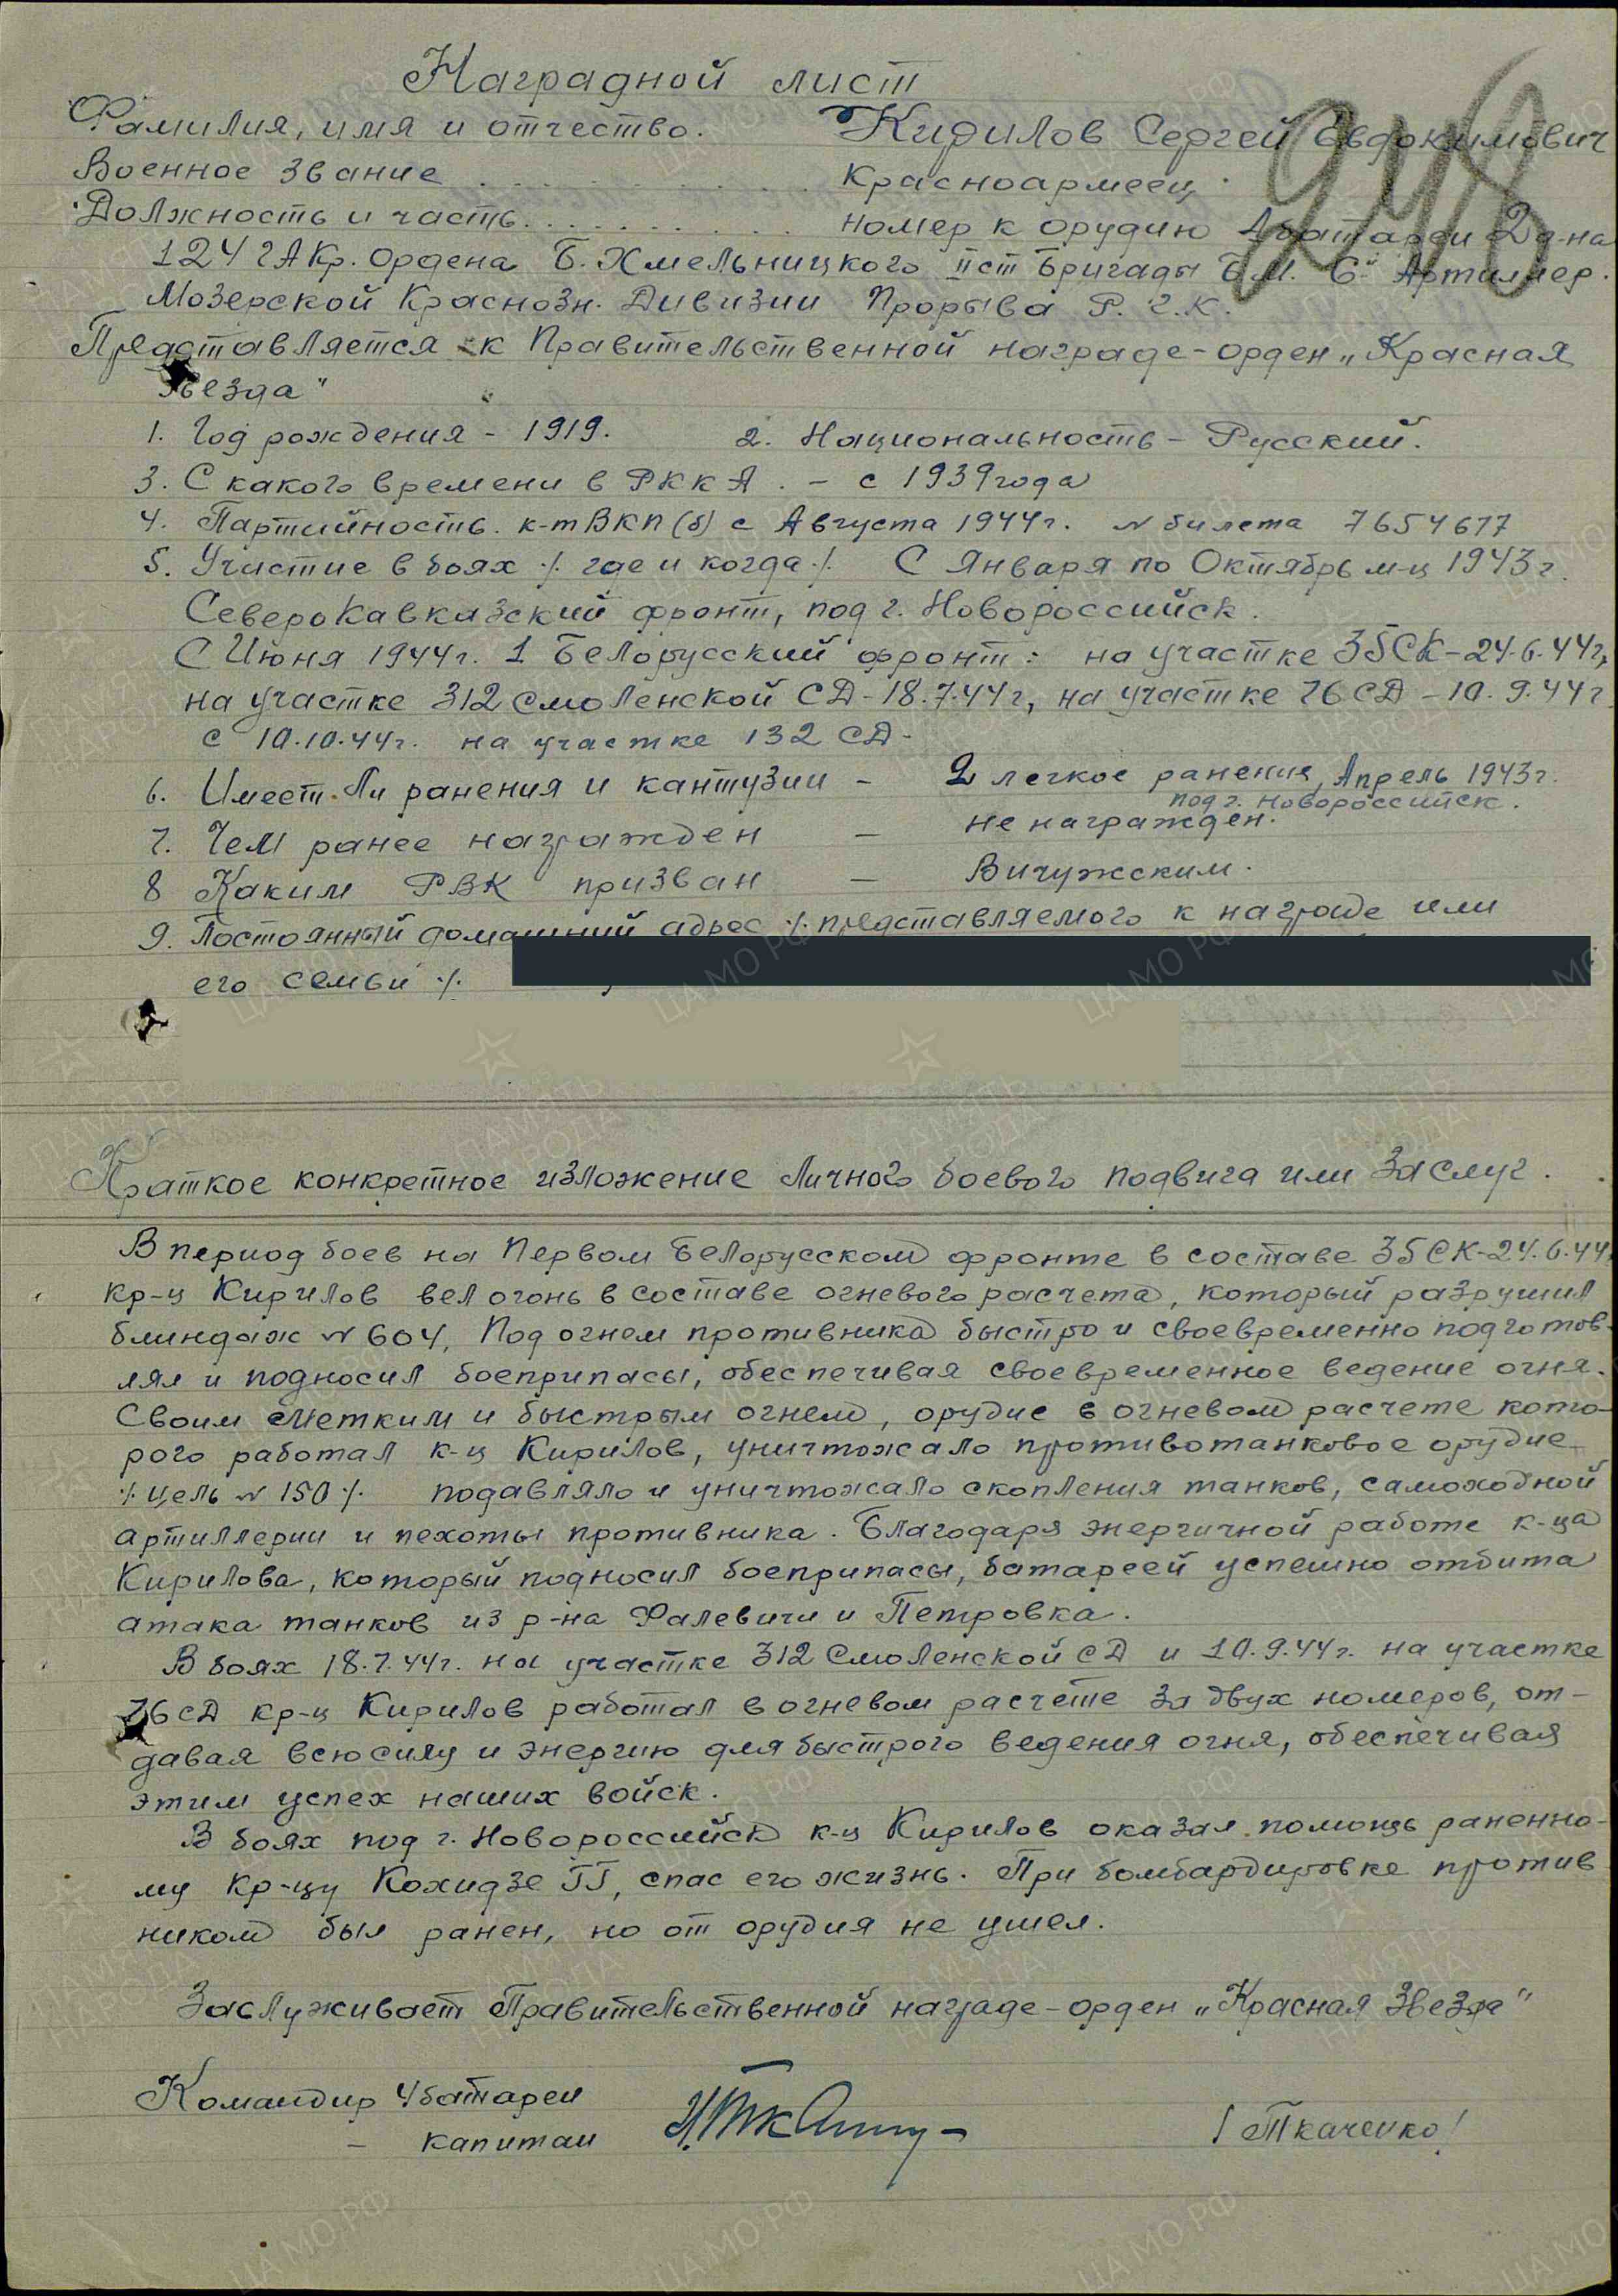 Наградной лист
Фамилия, имя и отчество. Кирилов Сергей Евдокимович
Военное звание . . . . . . . . . . Красноармеец.
Должность и часть. . . . . . . . . . номер к орудию 4 батареи 2 д-на
124 ГАКр. Ордена Б. Хмельницкого II ст Бригады Б.М. 6й Артиллер.
Мозерской Краснозн. Дивизии Прорыва Р.Г.К.
Представляется к Правительственной награде - орден „Красная
Звезда"
1. Год рождения - 1919. 2. Национальность - Русский.
3. С какого времени в РККА. - с 1939 года
4. Партийность. к-т ВКП(б) с Августа 1944 г. № билета 7654677
5. Участие в боях ٪ где и когда ٪ С Января по Октябрь м-ц 1943 г.
СевероКавказский фронт, под г. Новороссийск.
С Июня 1944 г. 1 Белорусский фронт: на участке 35 СК - 24.6.44 г,
на участке 312 Смоленской СД - 18.7.44 г, на участке 76 СД - 10.9.44 г
с 10.10.44 г. на участке 132 СД -
6. Имеет ли ранения и кантузии - 2 легкое ранения, Апрель 1943 г.
под г. Новороссийск.
7. Чем ранее награжден - не награжден.
8 Каким РВК призван - Вичужским.
9. Постоянный домашний адрес ٪ представляемого к награде или
его семьи ٪
Краткое конкретное изложение личного боевого подвига или заслуг.
В период боев на Первом Белорусском фронте в составе 35 СК - 24.6.44
кр-ц Кирилов вел огонь в составе огневого расчета, который разрушил
блиндаж № 604, Под огнем противника быстро и своевременно подготов-
лял и подносил боеприпасы, обеспечивая своевременное ведение огня.
Своим метким и быстрым огнем, орудие в огневом расчете кото-
рого работал к-ц Кирилов, уничтожало противотанковое орудие
٪ цель № 150 ٪ подавляло и уничтожало скопления танков, самоходной
артиллерии и пехоты противника. Благодаря энергичной работе к-ца
Кирилова, который подносил боеприпасы, батареей успешно отбита
атака танков из р-на Фалевичи и Петровка.
В боях 18.7.44 г. на участке 312 Смоленской СД и 10.9.44 г. на участке
76 СД кр-ц Кирилов работал в огневом расчете за двух номеров, от-
давая всю силу и энергию для быстрого ведения огня, обеспечивая
этим успех наших войск.
В боях под г. Новороссийск к-ц Кирилов оказал помощь раненно-
му кр-цу Кохидзе ГГ, спас его жизнь. При бомбардировке против
ником был ранен, но от орудия не ушел.
Заслуживает Правительственной награде - орден „Красная Звезда"
Командир 4 батареи
- капитан /Ткаченко/
248
ПАМЯТЬ НАРОДА
ЦА МО РФ